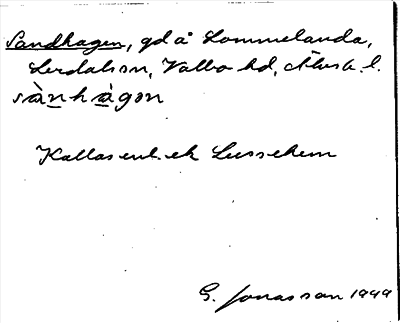 Sandhagen, gd å Lommelanda,
Lerdalssn, Valbo hd, Älvsb. l.
sànhàgən
Kallas enl. ek Lussehem
G. Jonasson 1949